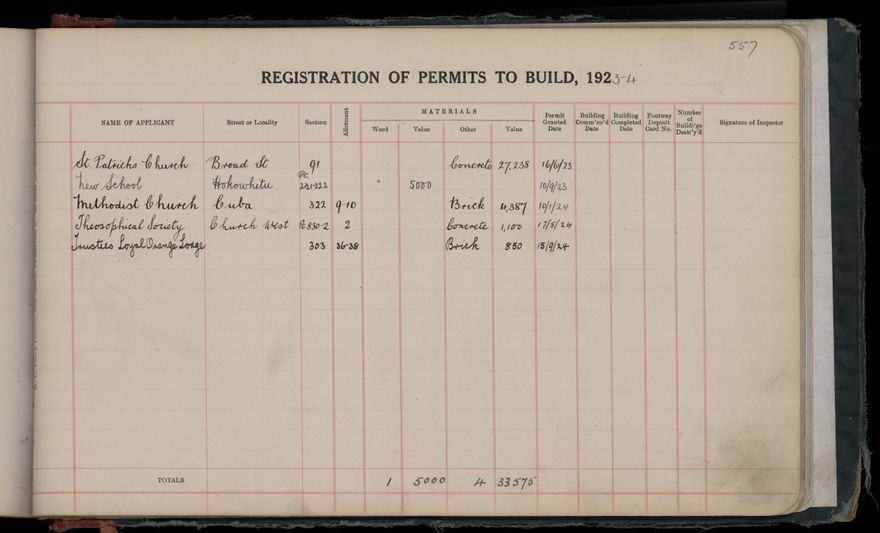 557
REGISTRATION OF PERMITS TO BUILD, 1923-4
NAME OF APPLICANT Street or Locality Section Allotment MATERIALS Wood Value Other Value Permit Granted Date Building Comm'nc'd Date Building Completed Date Footway Deposit Card No. Number of Buildi'gs Destr'y'd Signature of Inspector
St. Patricks Church Broad St 91 Concrete 27,238 16/6/23
New School Hokowhitu Pt. 221-222 " 5000 10/9/23
Methodist Church Cuba 322 9-10 Brick 4,387 10/1/24
Theosophical Society Church West Pt 830-2 2 Concrete 1,100 17/5/24
Trustees Loyal Orange Lodge 303 36-38 Brick 850 15/9/24
TOTALS 1 5000 4 33575